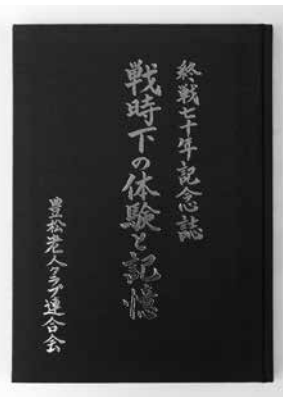 終戦七十年記念誌
戦時下の体験と記憶
豊松老人クラブ連合会